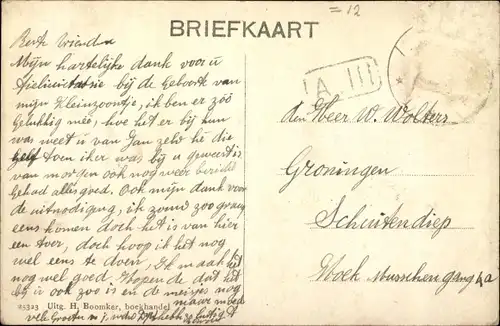 = 12
BRIEFKAART
A III
Beste Vrienden
Mijn hartelijke dank voor u
Felicitatie bij de Geboorte van
mijn Kleinzoontje, ik ben er zóó
Gelukkig mee, hoe het er bij hun
was weet u van Jan zelv he die
toen iker was bij u geweest is
van morgen ook nog weer bericht
Gehad alles goed. Ook mijn dank voor
de uitnodiging, ik zoud zoo graag
eens komen doch het is van hier
een toer, doch hoop ik het nog
wel eens te doen, Ik maak het
nog wel goed. Hopende dat het
bij u ook zoo is en de meisjes nog
maar
vele Groeten
den Heer W. Wolters
Groningen
Schuitendiep
Hoek Musschengang 4a
25323 Uitg. H. Boomker, boekhandel